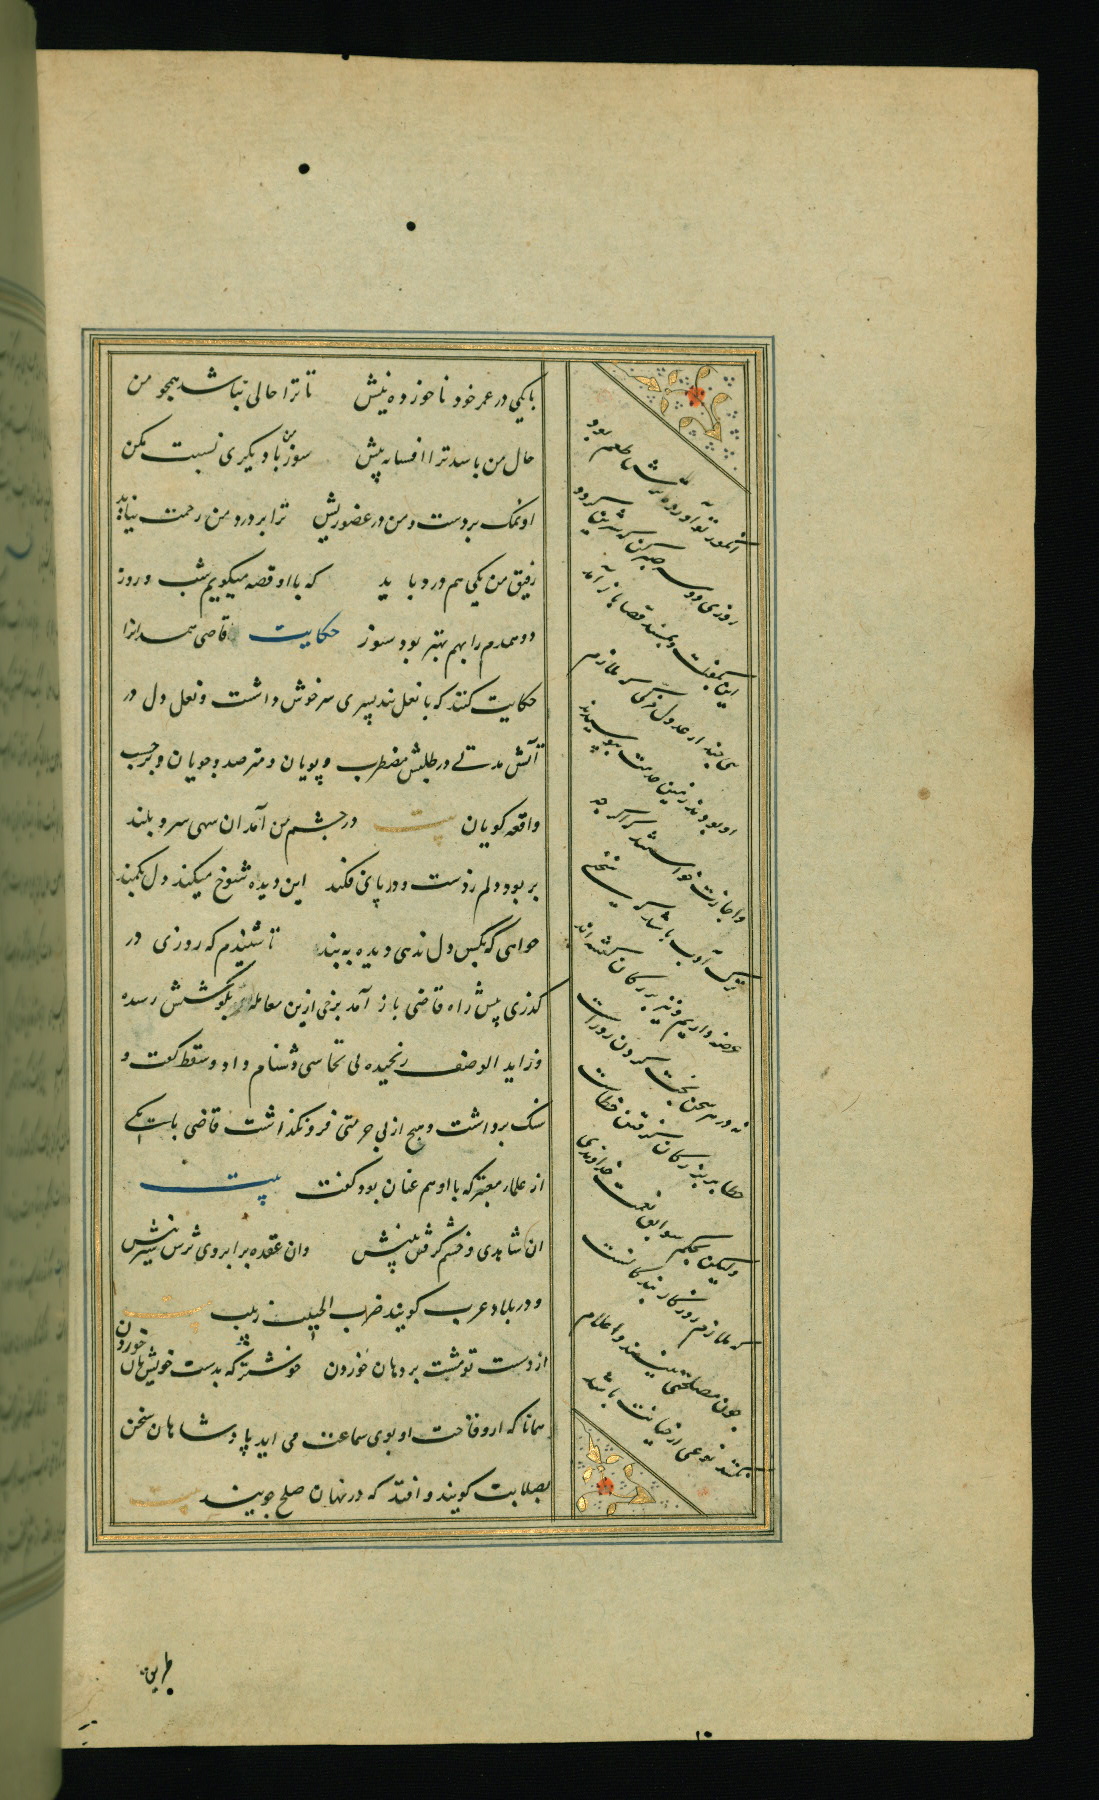 بایکی در عمر خود ناخورده نیش تا ترا حالی نباشد همچو من
حال من باشد ترا افسانه پیش سوز من با دیگری نسبت مکن
او نمک بر دست و من بر عضو ریش ترا بر درد من رحمت نیاید
رفیق من یکی هم درد باید که با او قصه میگویم شب و روز
دو همدم را بهم بهتر بود سوز حکایت قاضی همدانرا
حکایت کنند که با نعل بند پسری سر خوش داشت و نعل دل در
آتش مدتی در طلبش مضطرب و پویان و مترصد و جویان و بر حسب
واقعه کویان بیت در چشم من آمد ان سهی سرو بلند
بر بود دلم ز دست و در پای فکند این دیده شوخ میکند دل بکمند
خواهی که بکس دل ندهی دیده به بند تا شنیدم که روزی در
کذری پیش راه قاضی باز آمد برخی ازین معامله بکوشش رسده
و زاید الوصف رنجیده بی تحاشی دشنام داد و سقط کفت و
سنک برداشت و هیچ از بی حرمتی فرو نکذاشت قاضی با یکی
از علماء معتبر که با او هم عنان بود کفت بیت
ان شاهدی و خشم کرفتن بینش وان عقده بر ابروی ترش شیرینش
و در بلاد عرب کویند ضرب الحبیب زبیب بیت
از دست تو مشت بر دهان خوردن خوشتر که بدست خویش نان خوردن
همانا که از وقاحت او بوی سماعت می اید پادشاهان سخن
بصلابت کویند و افتد که در نهان صلح جویند بیت
انکور نو آورده ترش طعم بود
روزی دو سه صبر کن که شیرین کردد
این بکفت و بمسند قضا باز آمد
تنی چند از عدول که ملازم
او بودند زمین خدمت ببوسیدند
و اجازت خواستند که اکر چه
ترک آدب باشد سخنی
عرضه داریم و بزرکان کفته اند
نه در هر سخن بحث کردن رواست
خطا بر بزرکان کرفتن خطاست
ولیکن بحکم سوابق نعمت خداوندی
که ملازم روزکار بندکانست
چون مصلحتی بینند و اعلام
نکنند نوعی از خیانت باشد
طریق